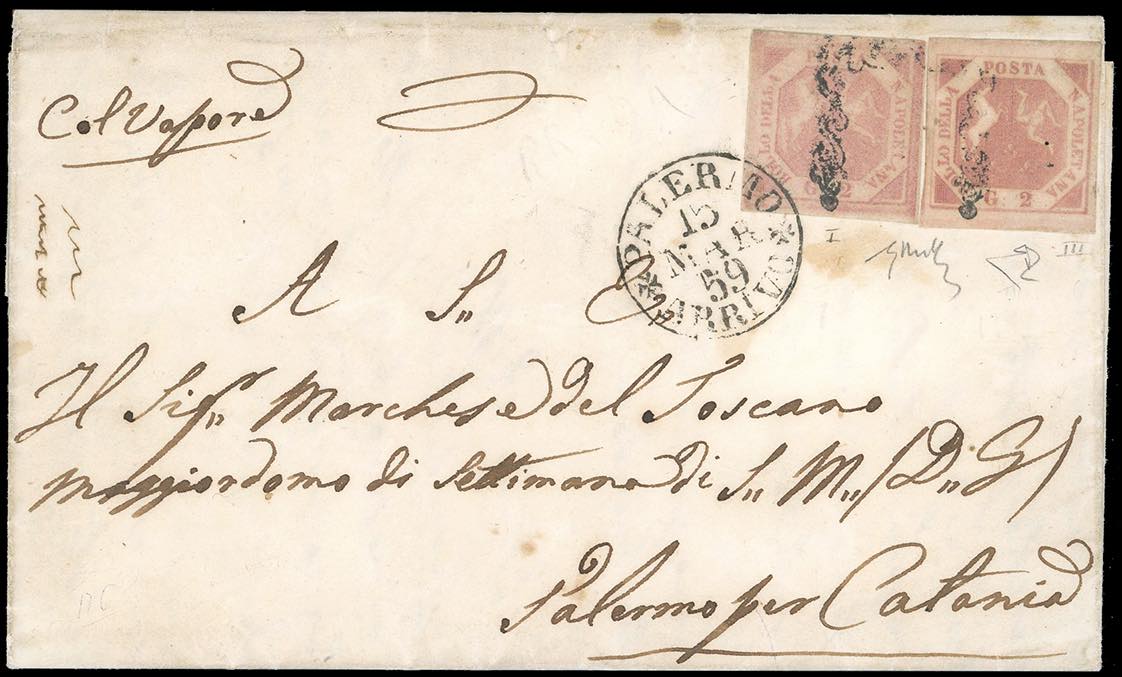 Col Vapore
POSTA
BOLLO DELLA
NAPOLETANA
G. 2
POSTA
BOLLO DELLA
NAPOLETANA
G. 2
PALERMO
15
MAR
59
ARRIVO
I
III
A S„ E
Il Sig.r Marchese del Toscano
Maggiordomo di Settimana di S„ M„ (D„ G)
Palermo per Catania